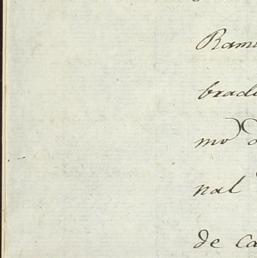 Ram
brad
mo
nal
de ca